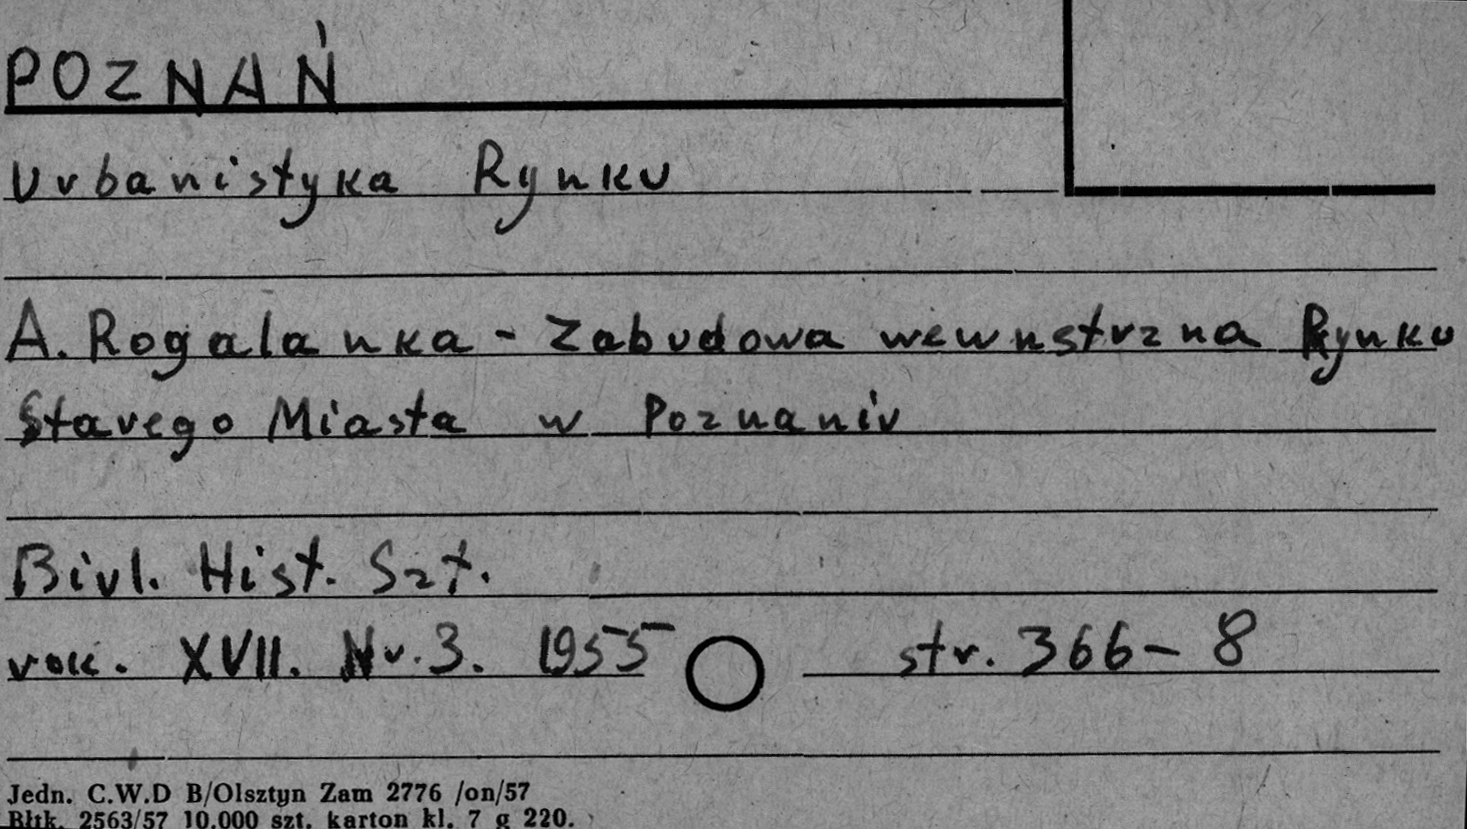 POZNAŃ
Urbanistyka Rynku
A. Rogalanka - Zabudowa wewnstrzna Rynku
Starego Miasta w Poznaniu
Biul. Hist. Szt.
rok. XVII. Nr. 3. 1955 str. 366-8
Jedn. C.W.D B/Olsztyn Zam 2776 /on/57
Błtk. 2563/57 10.000 szt. karton kl. 7 g 220.